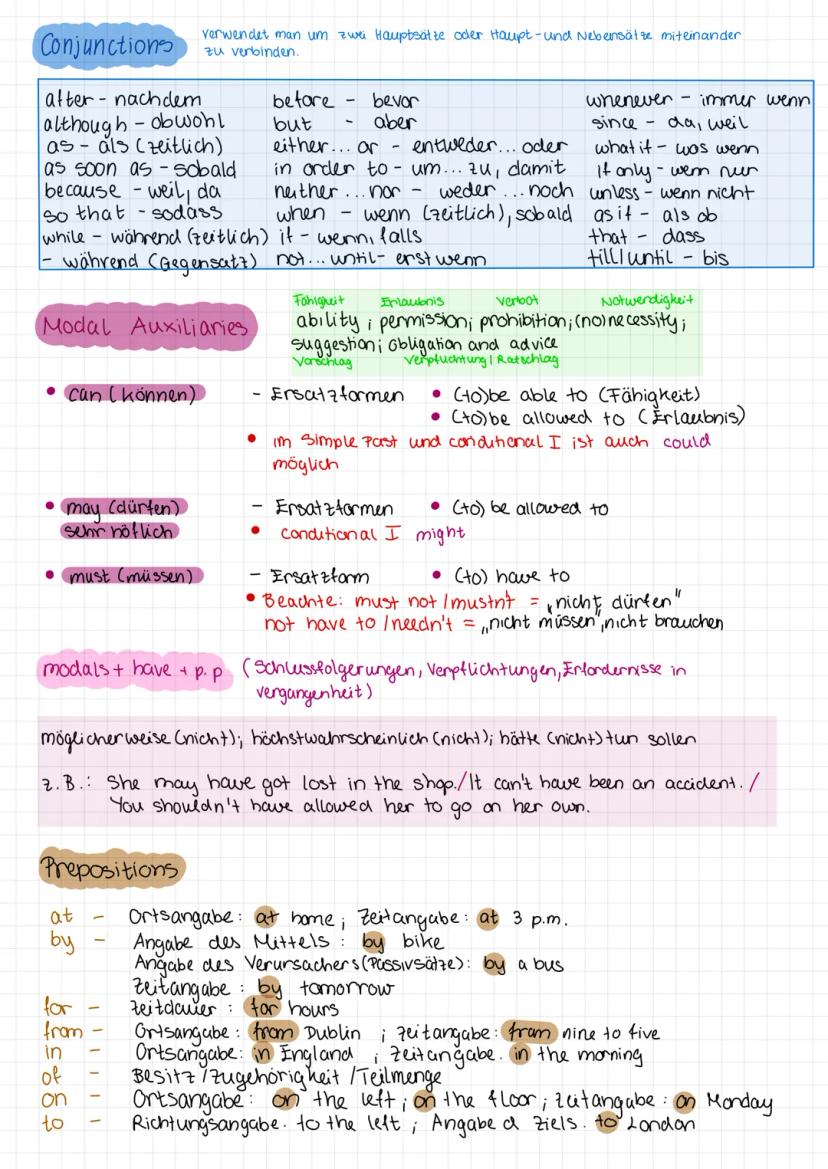 Conjunctions
verwendet man um zwei Hauptsätze oder Haupt- und Nebensätze miteinander
zu verbinden.
after - nachdem
although - obwohl
as - als (zeitlich)
as soon as - sobald
because - weil, da
so that - sodass
while - während (zeitlich)
- während (Gegensatz)
before - bevor
but - aber
either... or - entweder... oder
in order to - um... zu, damit
neither ...nor - weder ...noch
when - wenn (zeitlich), sobald
if - wenn, falls
not... until - erst wenn
whenever - immer wenn
since - da, weil
what if - was wenn
if only - wenn nur
unless - wenn nicht
as if - als ob
that - dass
till/until - bis
Modal Auxiliaries
Fähigkeit Erlaubnis Verbot Notwendigkeit
ability ; permission; prohibition; (no) necessity;
suggestion; obligation and advice
Vorschlag Verpflichtung / Ratschlag
• can (können) - Ersatzformen • (to) be able to (Fähigkeit)
• (to) be allowed to (Erlaubnis)
• im Simple Past und conditional I ist auch could
möglich
• may (dürfen) - Ersatzformen • (to) be allowed to
sehr höflich • conditional I might
• must (müssen) - Ersatzform • (to) have to
• Beachte: must not / mustn't = „nicht dürfen"
not have to / needn't = „nicht müssen", nicht brauchen
modals + have + p.p (Schlussfolgerungen, Verpflichtungen, Erfordernisse in
vergangenheit)
möglicherweise (nicht); höchstwahrscheinlich (nicht); hätte (nicht) tun sollen
z.B.: She may have got lost in the shop. / It can't have been an accident. /
You shouldn't have allowed her to go on her own.
Prepositions
at - Ortsangabe: at home ; Zeitangabe: at 3 p.m.
by - Angabe des Mittels : by bike
Angabe des Verursachers (Passivsätze): by a bus
Zeitangabe : by tomorrow
for - Zeitdauer : for hours
from - Ortsangabe: from Dublin ; Zeitangabe: from nine to five
in - Ortsangabe: in England ; Zeitangabe. in the morning
of - Besitz / Zugehörigkeit / Teilmenge
on - Ortsangabe: on the left ; on the floor ; Zeitangabe : on Monday
to - Richtungsangabe. to the left ; Angabe d Ziels. to London